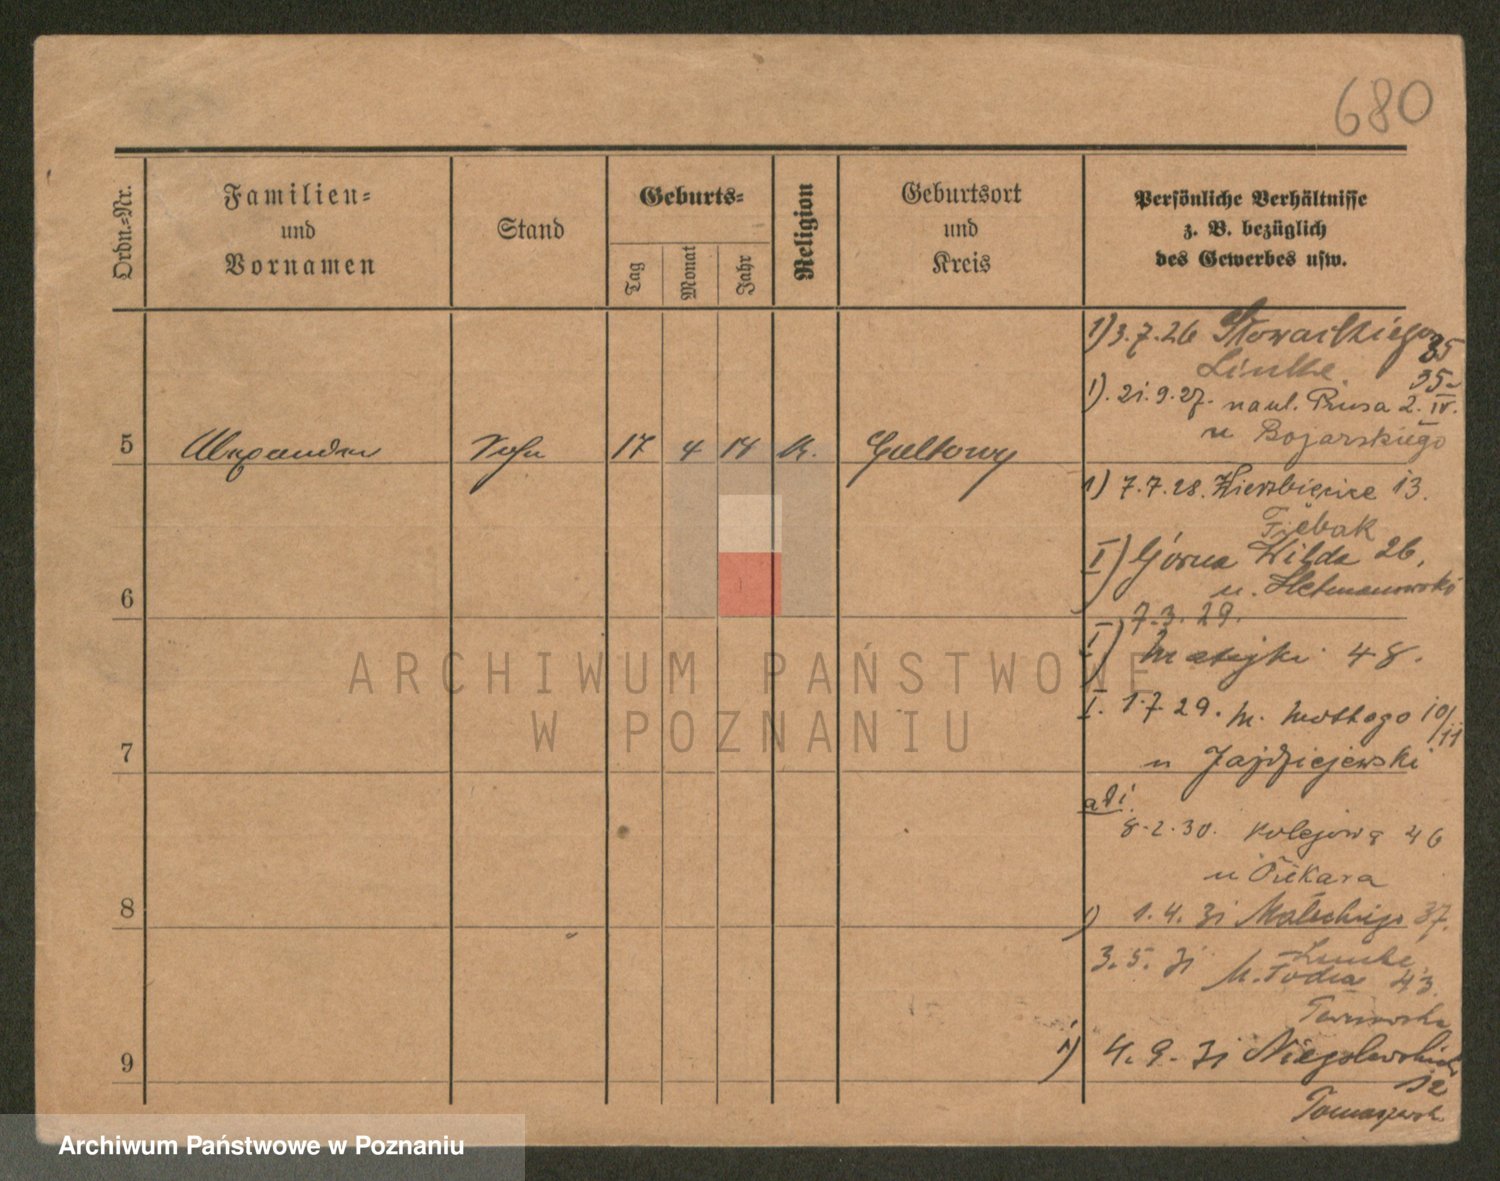 680
Ordn.-Nr.
Familien-
und
Vornamen
Stand
Geburts-
Tag
Monat
Jahr
Religion
Geburtsort
und
Kreis
Persönliche Verhältnisse
z. B. bezüglich
des Gewerbes usw.
1) 3.7.26 Słowackiego
35
Linke
35
1). 21.9.27. na ul. Prusa 2. IV.
u Bojarskiego
5 Alexander Sohn 17 4 K. Gultowy
1) 7.7.28. Wierzbięcice 13.
I) Górna Wilda 26,
6
u. Hetmanowski
7.3.29.
I) Matejki 48.
I. 1.7.29. M. Mottego 10/11
7
u Jajdziejewski
ad 1.
8.2.30. Kolejowa 46
u Piekara
8
1) 1.4.31 37.
3.5.31
43.
1) 4.9.31 Niegolewskich
9
12
ARCHIWUM PAŃSTWOWE
W POZNANIU
Archiwum Państwowe w Poznaniu